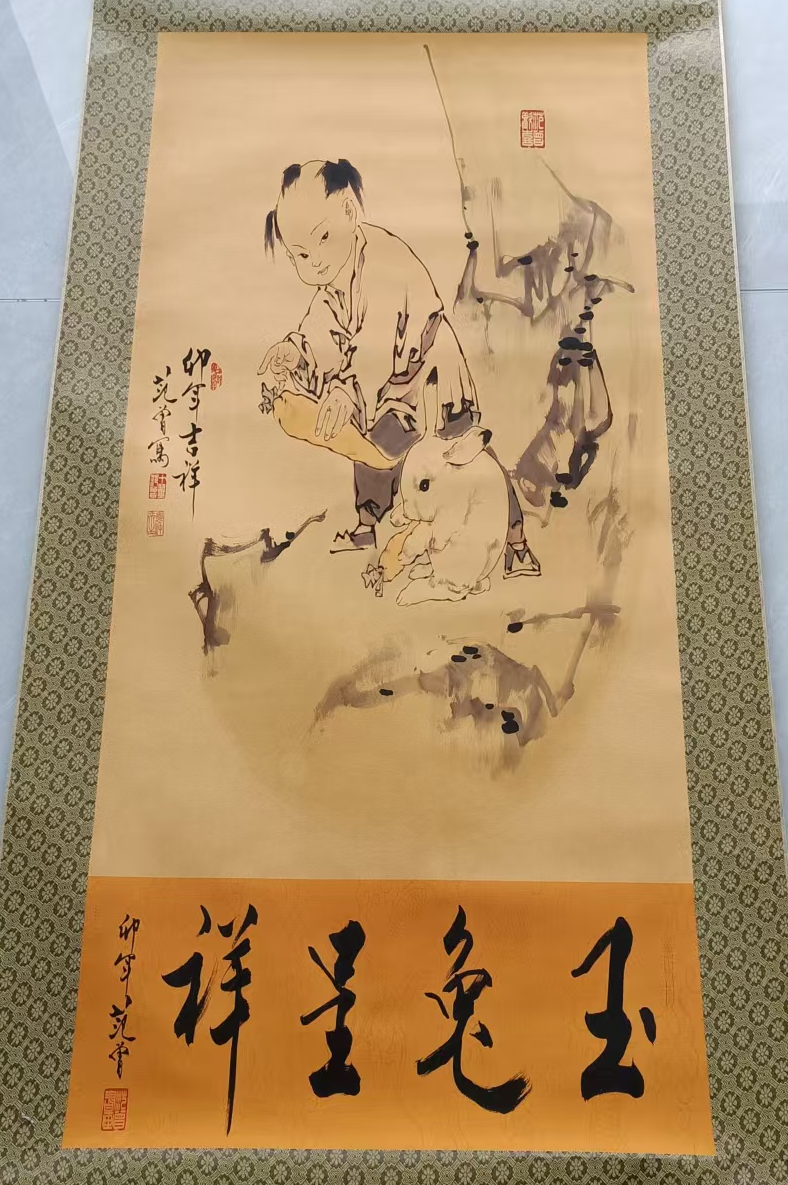 卯年吉祥
范曾寫
玉兔呈祥
卯年范曾